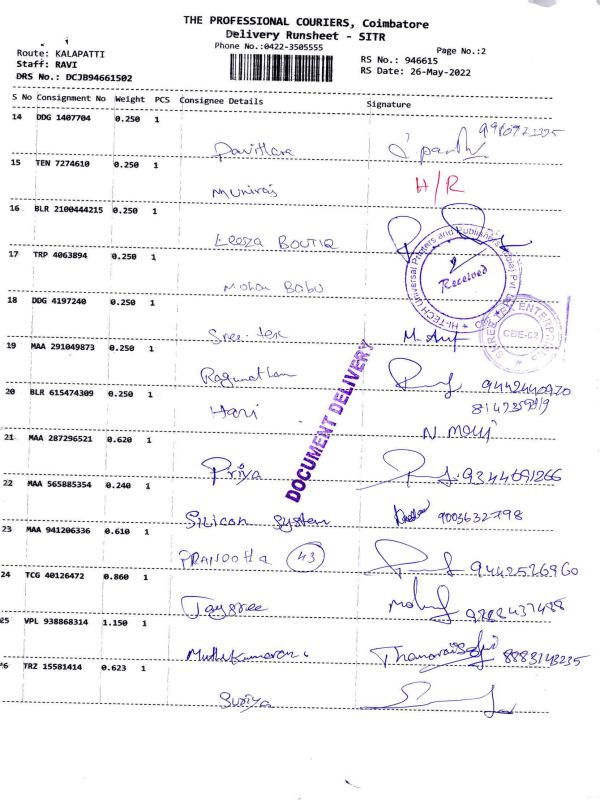 THE PROFESSIONAL COURIERS, Coimbatore
Delivery Runsheet - SITR
Phone No.:0422-3505555
Page No.:2
Route: KALAPATTI
Staff: RAVI
DRS No.: DCJB94661502
RS No.: 946615
RS Date: 26-May-2022
S No Consignment No Weight PCS Consignee Details Signature
14 DDG 1407704 0.250 1
15 TEN 7274610 0.250 1
Muniraj H/R
16 BLR 2100444215 0.250 1
17 TRP 4063894 0.250 1
Mohan Babu
Received
18 DDG 4197240 0.250 1
SHREE TEX ENTERPRISES
CBE-62
19 MAA 291049873 0.250 1
Ragunathan
20 BLR 615474309 0.250 1
Hari
DOCUMENT DELIVERY
21 MAA 287296521 0.620 1
Priya 9344691266
22 MAA 565885354 0.240 1
Silicon System 9003632798
23 MAA 941206336 0.610 1
43 9442526960
24 TCG 40126472 0.860 1
Jaysree
25 VPL 938868314 1.150 1
Muthukumaran 8883143235
26 TRZ 15581414 0.623 1
Suriya